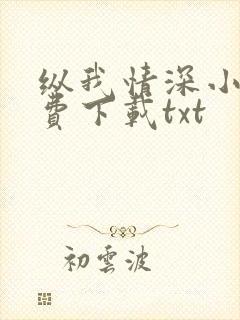 纵我情深小
費下載txt
初雲波